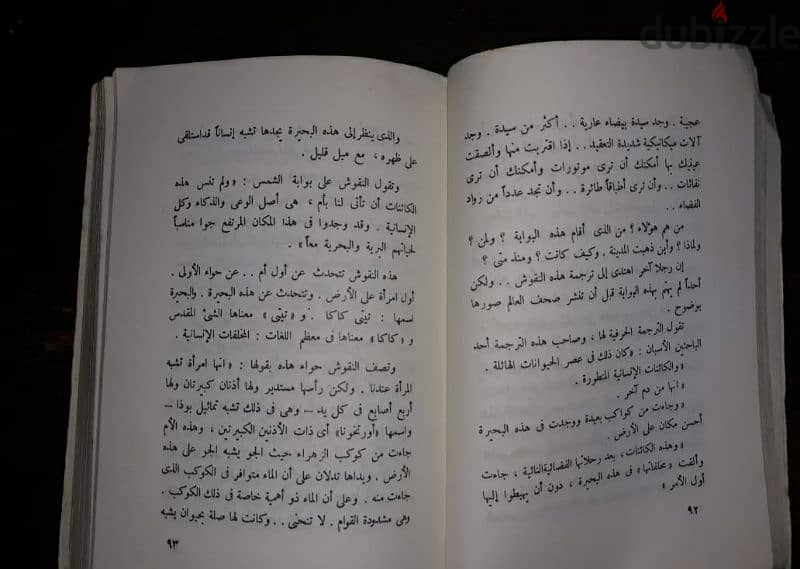 dubizzle
عجيبة . وجد سيدة بيضاء عارية . . أكثر من سيدة . وجد
آلات ميكانيكية شديدة التعقيد . . إذا اقتربت منها وألصقت
عينيك بها أمكنك أن ترى موتورات وأمكنك أن ترى
نفاثات . . وأن ترى أطباقاً طائرة . . وأن تجد عدداً من رواد
الفضاء . .
من هم هؤلاء ؟ من الذى أقام هذه البوابة ؟ ولمن ؟
ولماذا ؟ وأين ذهبت المدينة ، وكيف كانت ؟ ومنذ متى ؟
إن رجلا آخر اهتدى إلى ترجمة هذه النقوش . . ولكن
أحداً لم يهتم بهذه البوابة قبل أن تنشر صحف العالم صورها
بوضوح .
تقول الترجمة الحرفية لها ، وصاحب هذه الترجمة أحد
الباحثين الأسبان : «كان ذلك فى عصر الحيوانات الهائلة .
«والكائنات الإنسانية المتطورة .
«انها من دم آخر .
«وجاءت من كواكب بعيدة ووجدت فى هذه البحيرة
أحسن مكان على الأرض .
«وهذه الكائنات ، بعد رحلاتها الفضائية النائية ، جاءت
وألقت «بمخلفاتها» فى هذه البحيرة ، دون أن يهبطوا إليها
أول الأمر »
٩٢
والذى ينظر إلى هذه البحيرة يجدها تشبه إنساناً قد استلقى
على ظهره ، مع ميل قليل .
وتقول النقوش على بوابة الشمس : «ولم تنس هذه
الكائنات أن تأتى لنا بأم ، هى أصل الوعى والذكاء وكل
الإنسانية . وقد وجدوا فى هذا المكان المرتفع جوا مناسباً
لحياتهم البرية والبحرية معاً» .
هذه النقوش تتحدث عن أول أم . . عن حواء الأولى .
أول امرأة على الأرض . وتتحدث عن هذه البحيرة . والبحيرة
اسمها : تيتى كاكا . و « تيتى » معناها الشئ المقدس
و «كاكا» معناها فى معظم اللغات : المخلفات الإنسانية .
وتصف النقوش حواء هذه بقولها : «انها امرأة تشبه
المرأة عندنا . ولكن رأسها مستدير ولها أذنان كبيرتان ولها
أربع أصابع فى كل يد — وهى فى ذلك تشبه تماثيل بوذا —
واسمها «أورتخونا» أى ذات الأذنين الكبيرتين ، وهذه الأم
جاءت من كوكب الزهراء حيث الجو يشبه الجو على هذه
الأرض . ويداها تدلان على أن الماء متوافر فى الكوكب الذى
جاءت منه . وعلى أن الماء ذو أهمية خاصة فى ذلك الكوكب .
وهى مشدودة القوام . لا تنحنى . . وكانت لها صلة بحيوان يشبه
٩٣